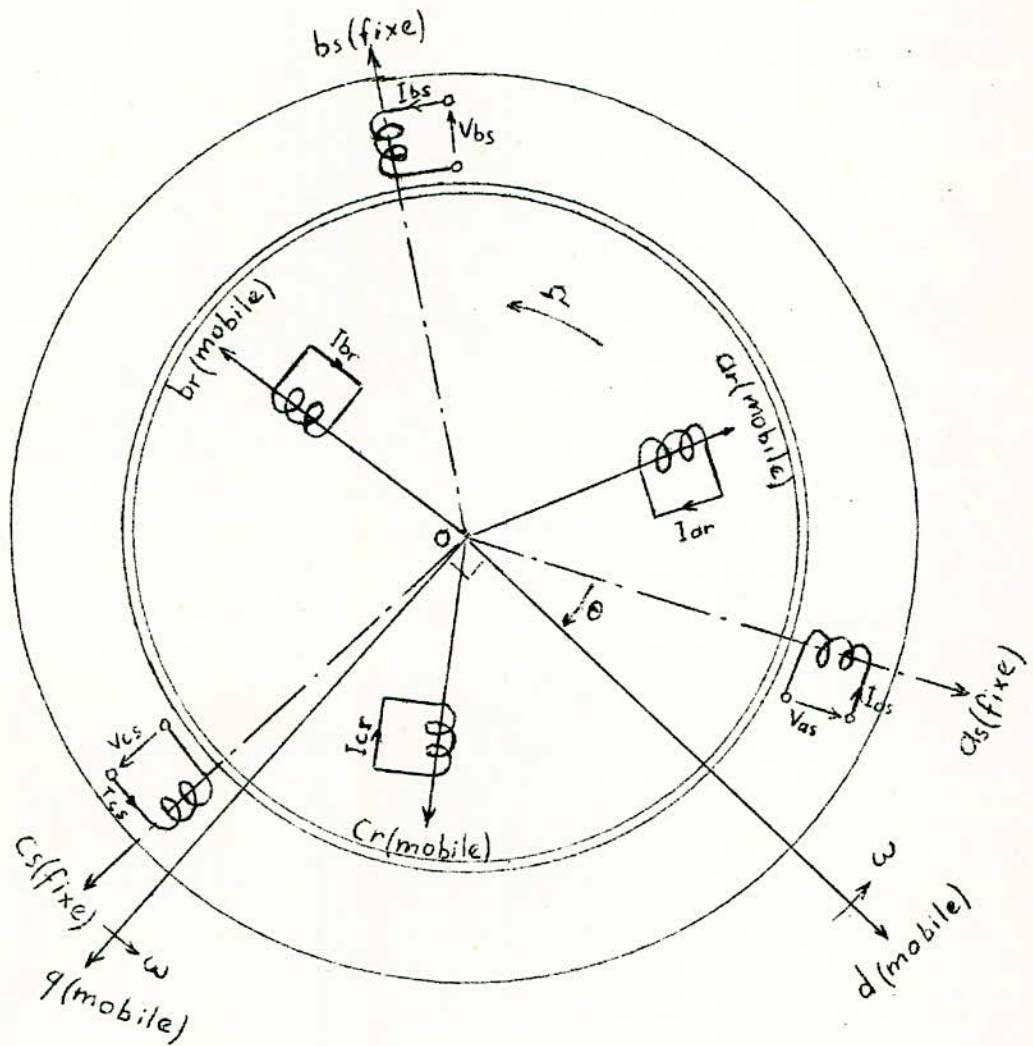 bs(fixe)
Ibs
Vbs
Ω
br(mobile)
Ibr
ar(mobile)
Iar
O
θ
Vas
Ias
as(fixe)
Icr
Cr(mobile)
Vcs
Ics
Cs(fixe)
ω
q(mobile)
ω
d(mobile)